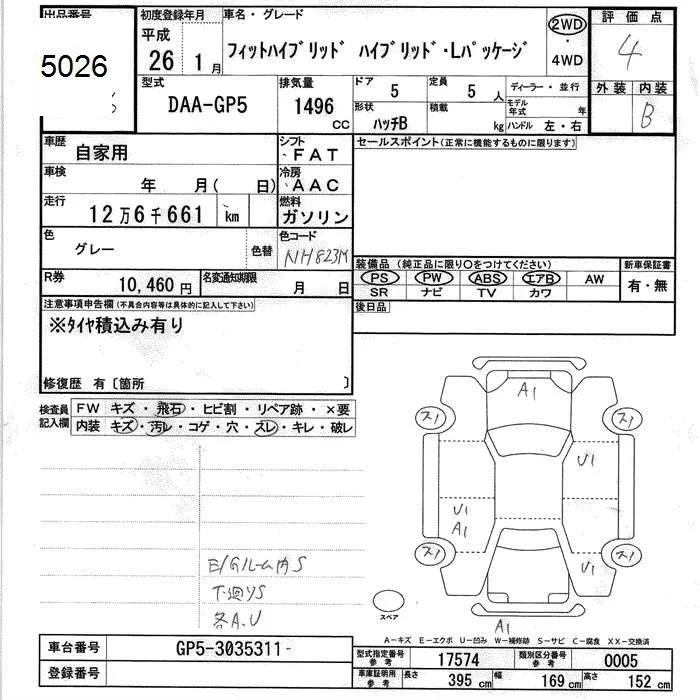 出品番号 初度登録年月 車名・グレード 2WD 評価点
5026 平成 26 1月 フィットハイブリッド ハイブリッド・Lパッケージ ・ 4WD 4
型式 排気量 ドア 定員 ディーラー・並行 外装 内装
DAA-GP5 1496 CC 5 5 人 モデル年式 年 B
形状 積載
ハッチB kg ハンドル 左・右
車歴 自家用 シフト FAT セールスポイント(正常に機能するものに限ります)
車検 年 月( 日) 冷房 AAC
走行 12万6千661 km 燃料 ガソリン
色 グレー 色替 色コード NH823M
装備品(純正品に限り〇をつけてください) 新車保証書
R券 10,460円 名変通知期限 月 日 PS PW ABS エアB AW 有・無
SR ナビ TV カワ
注意事項申告欄(不具合内容等は具体的に記入して下さい) 後日品
※タイヤ積込み有り
修復歴 有〔箇所 〕
検査員記入欄 FW キズ・飛石・ヒビ割・リペア跡・×要
内装 キズ・汚レ・コゲ・穴・スレ・キレ・破レ
A1
ス1 ス1
U1
U1
A1
ス1 ス1
U1
E/Gルーム内S
下廻りS
各A.U
スペア
A1
A-キズ E-エクボ U-凹み W-補修跡 S-サビ C-腐食 XX-交換済
車台番号 GP5-3035311-
型式指定番号 参考 17574 類別区分番号 参考 0005
登録番号 車庫証明用 参考 長さ 395 cm 幅 169 cm 高さ 152 cm